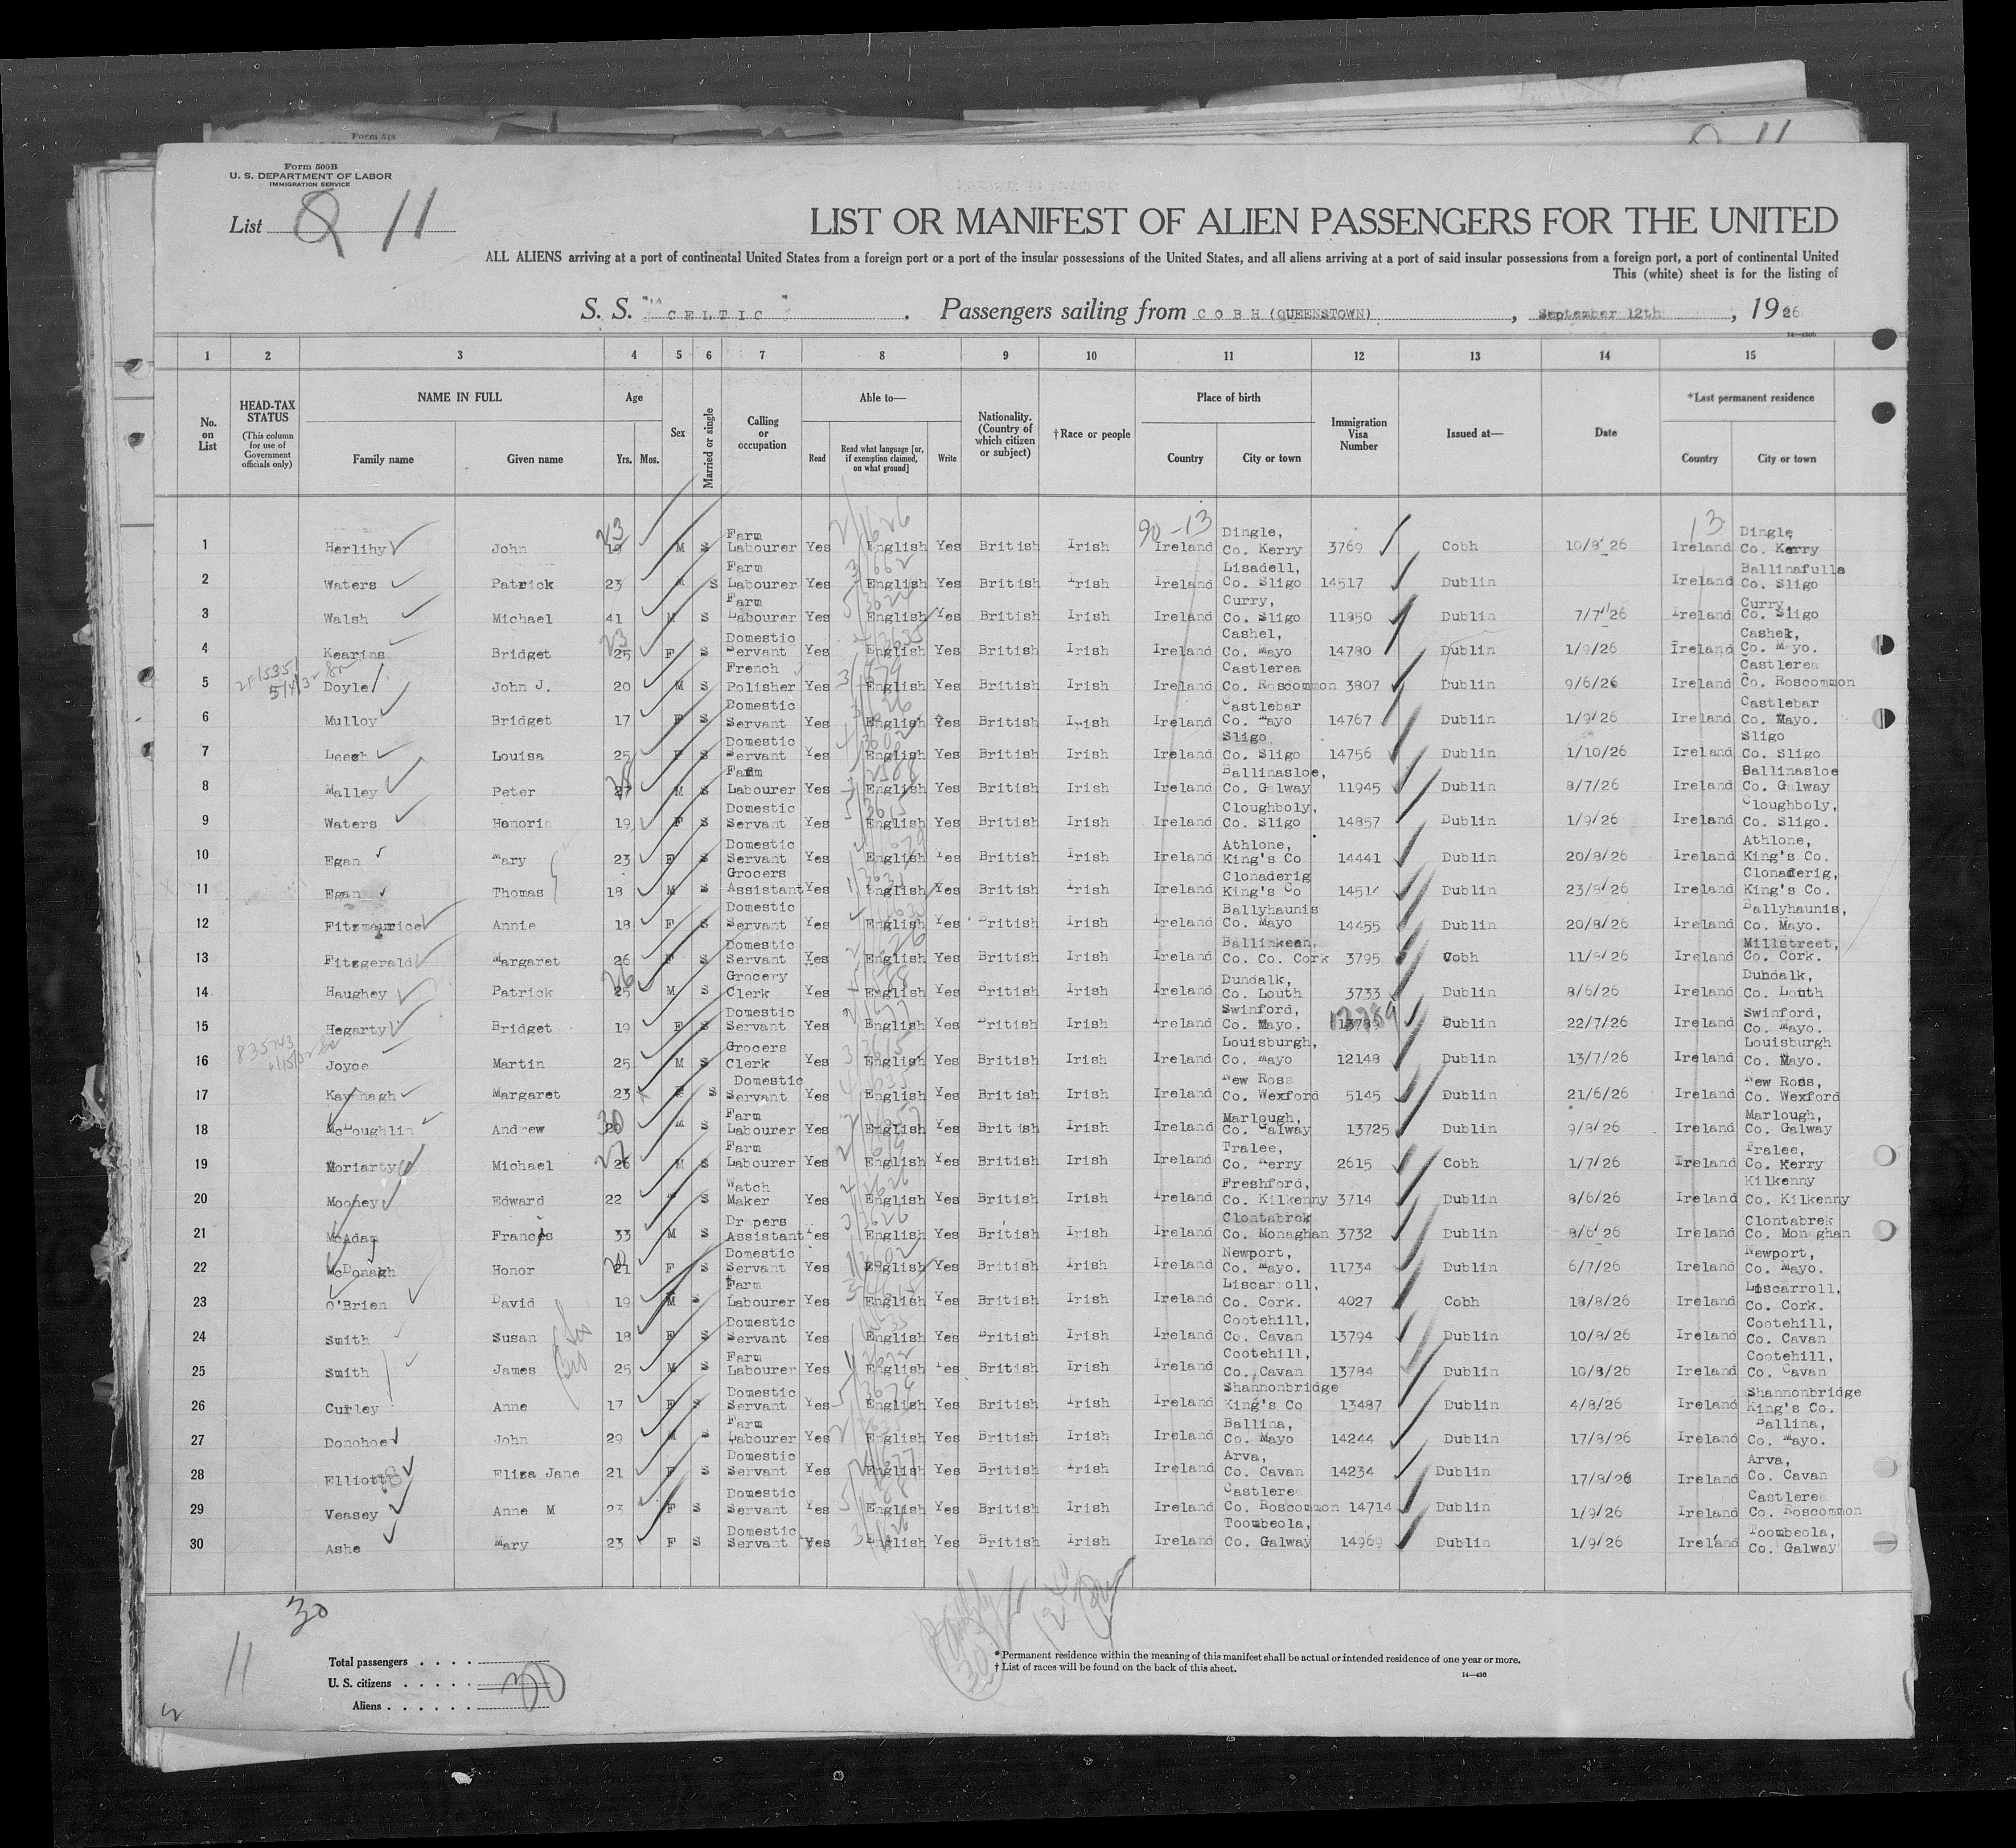 Form 500B
U. S. DEPARTMENT OF LABOR
IMMIGRATION SERVICE
List Q 11
LIST OR MANIFEST OF ALIEN PASSENGERS FOR THE UNITED
ALL ALIENS arriving at a port of continental United States from a foreign port or a port of the insular possessions of the United States, and all aliens arriving at a port of said insular possessions from a foreign port, a port of continental United
This (white) sheet is for the listing of
S. S. "CELTIC". Passengers sailing from COBH (QUEENSTOWN), September 12th, 1926
1 2 3 4 5 6 7 8 9 10 11 12 13 14 15
No. on List
HEAD-TAX STATUS (This column for use of Government officials only)
NAME IN FULL Family name Given name
Age Yrs. Mos.
Sex
Married or single
Calling or occupation
Able to— Read Read what language [or, if exemption claimed, on what ground] Write
Nationality. (Country of which citizen or subject)
†Race or people
Place of birth Country City or town
Immigration Visa Number
Issued at—
Date
*Last permanent residence Country City or town
1 Herlihy John 19 23 M S Farm Labourer Yes English Yes British Irish 90-13 Ireland Dingle, Co. Kerry 3769 Cobh 10/8/26 13 Ireland Dingle, Co. Kerry
2 Waters Patrick 23 M S Farm Labourer Yes English Yes British Irish Ireland Lisadell, Co. Sligo 14517 Dublin Ireland Ballinafulla Co. Sligo
3 Walsh Michael 41 M S Farm Labourer Yes English Yes British Irish Ireland Curry, Co. Sligo 11850 Dublin 7/7/26 Ireland Curry, Co. Sligo
4 Kearins Bridget 25 23 F S Domestic Servant Yes English Yes British Irish Ireland Cashel, Co. Mayo 14780 Dublin 1/9/26 Ireland Cashel, Co. Mayo.
5 Doyle John J. 20 M S French Polisher Yes English Yes British Irish Ireland Castlerea Co. Roscommon 3807 Dublin 9/6/26 Ireland Castlerea Co. Roscommon
6 Mulloy Bridget 17 F S Domestic Servant Yes English Yes British Irish Ireland Castlebar Co. Mayo 14767 Dublin 1/9/26 Ireland Castlebar Co. Mayo.
7 Leech Louisa 25 F S Domestic Servant Yes English Yes British Irish Ireland Sligo Co. Sligo 14756 Dublin 1/10/26 Ireland Sligo Co. Sligo
8 Malley Peter 27 28 M S Farm Labourer Yes English Yes British Irish Ireland Ballinasloe, Co. Galway 11945 Dublin 8/7/26 Ireland Ballinasloe Co. Galway
9 Waters Honoria 19 F S Domestic Servant Yes English Yes British Irish Ireland Cloughboly, Co. Sligo 14857 Dublin 1/9/26 Ireland Cloughboly, Co. Sligo.
10 Egan Mary 23 F S Domestic Servant Yes English Yes British Irish Ireland Athlone, King's Co 14441 Dublin 20/8/26 Ireland Athlone, King's Co.
11 Egan Thomas 18 M S Grocers Assistant Yes English Yes British Irish Ireland Clonaderig King's Co 14514 Dublin 23/8/26 Ireland Clonaderig, King's Co.
12 Fitzmaurice Annie 18 F S Domestic Servant Yes English Yes British Irish Ireland Ballyhaunis Co. Mayo 14455 Dublin 20/8/26 Ireland Ballyhaunis, Co. Mayo.
13 Fitzgerald Margaret 26 F S Domestic Servant Yes English Yes British Irish Ireland Ballinkeen, Co. Co. Cork 3795 Cobh 11/8/26 Ireland Millstreet, Co. Cork.
14 Haughey Patrick 25 26 M S Grocery Clerk Yes English Yes British Irish Ireland Dundalk, Co. Louth 3733 Dublin 8/6/26 Ireland Dundalk, Co. Louth
15 Hegarty Bridget 19 F S Domestic Servant Yes English Yes British Irish Ireland Swinford, Co. Mayo. 13789 Dublin 22/7/26 Ireland Swinford, Co. Mayo.
16 Joyce Martin 25 M S Grocers Clerk Yes English Yes British Irish Ireland Louisburgh, Co. Mayo 12148 Dublin 13/7/26 Ireland Louisburgh Co. Mayo.
17 Kavanagh Margaret 23 F S Domestic Servant Yes English Yes British Irish Ireland New Ross Co. Wexford 5145 Dublin 21/6/26 Ireland New Ross, Co. Wexford
18 McLoughlin Andrew 30 M S Farm Labourer Yes English Yes British Irish Ireland Marlough, Co. Galway 13725 Dublin 9/8/26 Ireland Marlough, Co. Galway
19 Moriarty Michael 26 27 M S Farm Labourer Yes English Yes British Irish Ireland Tralee, Co. Kerry 2615 Cobh 1/7/26 Ireland Tralee, Co. Kerry
20 Mooney Edward 22 S Watch Maker Yes English Yes British Irish Ireland Freshford, Co. Kilkenny 3714 Dublin 8/6/26 Ireland Kilkenny Co. Kilkenny
21 McAdam Francis 33 M S Drapers Assistant Yes English Yes British Irish Ireland Clontabrek Co. Monaghan 3732 Dublin 8/6/26 Ireland Clontabrek Co. Monaghan
22 McDonagh Honor 21 F S Domestic Servant Yes English Yes British Irish Ireland Newport, Co. Mayo. 11734 Dublin 6/7/26 Ireland Newport, Co. Mayo.
23 O'Brien David 19 M S Farm Labourer Yes English Yes British Irish Ireland Liscarroll, Co. Cork. 4027 Cobh 18/8/26 Ireland Liscarroll, Co. Cork.
24 Smith Susan 18 F S Domestic Servant Yes English Yes British Irish Ireland Cootehill, Co. Cavan 13794 Dublin 10/8/26 Ireland Cootehill, Co. Cavan
25 Smith James 25 M S Farm Labourer Yes English Yes British Irish Ireland Cootehill, Co. Cavan 13784 Dublin 10/8/26 Ireland Cootehill, Co. Cavan
26 Curley Anne 17 F S Domestic Servant Yes English Yes British Irish Ireland Shannonbridge King's Co 13487 Dublin 4/8/26 Ireland Shannonbridge King's Co.
27 Donohoe John 29 M S Farm Labourer Yes English Yes British Irish Ireland Ballina, Co. Mayo 14244 Dublin 17/8/26 Ireland Ballina, Co. Mayo.
28 Elliott Eliza Jane 21 F S Domestic Servant Yes English Yes British Irish Ireland Arva, Co. Cavan 14234 Dublin 17/8/26 Ireland Arva, Co. Cavan
29 Veasey Anne M 23 F S Domestic Servant Yes English Yes British Irish Ireland Castlerea Co. Roscommon 14714 Dublin 1/9/26 Ireland Castlerea Co. Roscommon
30 Ashe Mary 23 F S Domestic Servant Yes English Yes British Irish Ireland Toombeola, Co. Galway 14969 Dublin 1/9/26 Ireland Toombeola, Co. Galway
30
11
Total passengers . . . .
U. S. citizens . . . . . 30
Aliens . . . . . .
*Permanent residence within the meaning of this manifest shall be actual or intended residence of one year or more.
†List of races will be found on the back of this sheet.
14—430